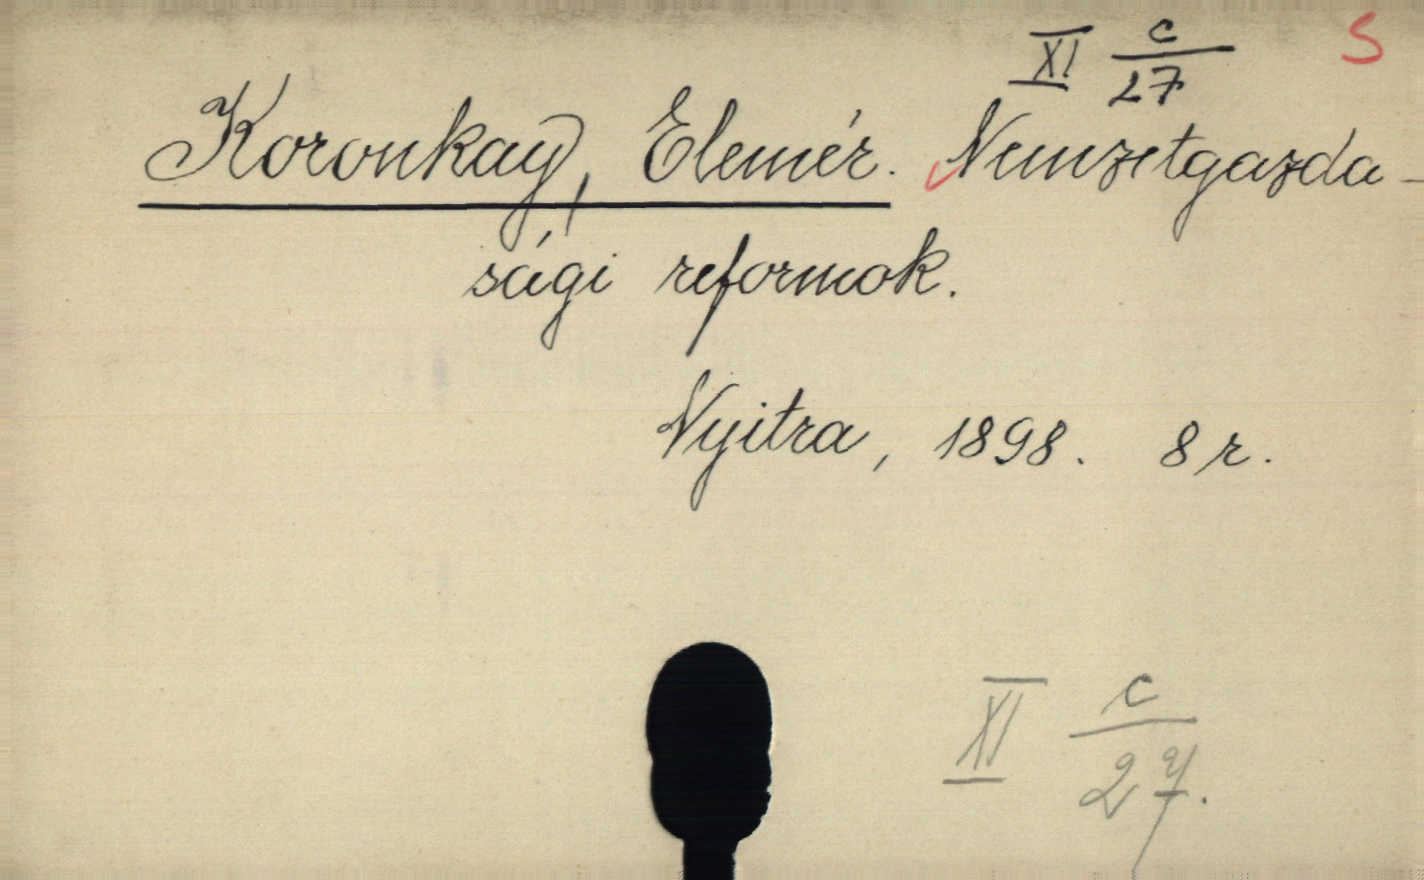 XI c/27 S
Koronkay, Elemér. Nemzetgazda-
sági reformok.
Nyitra, 1898. 8 r.
XI c/27.